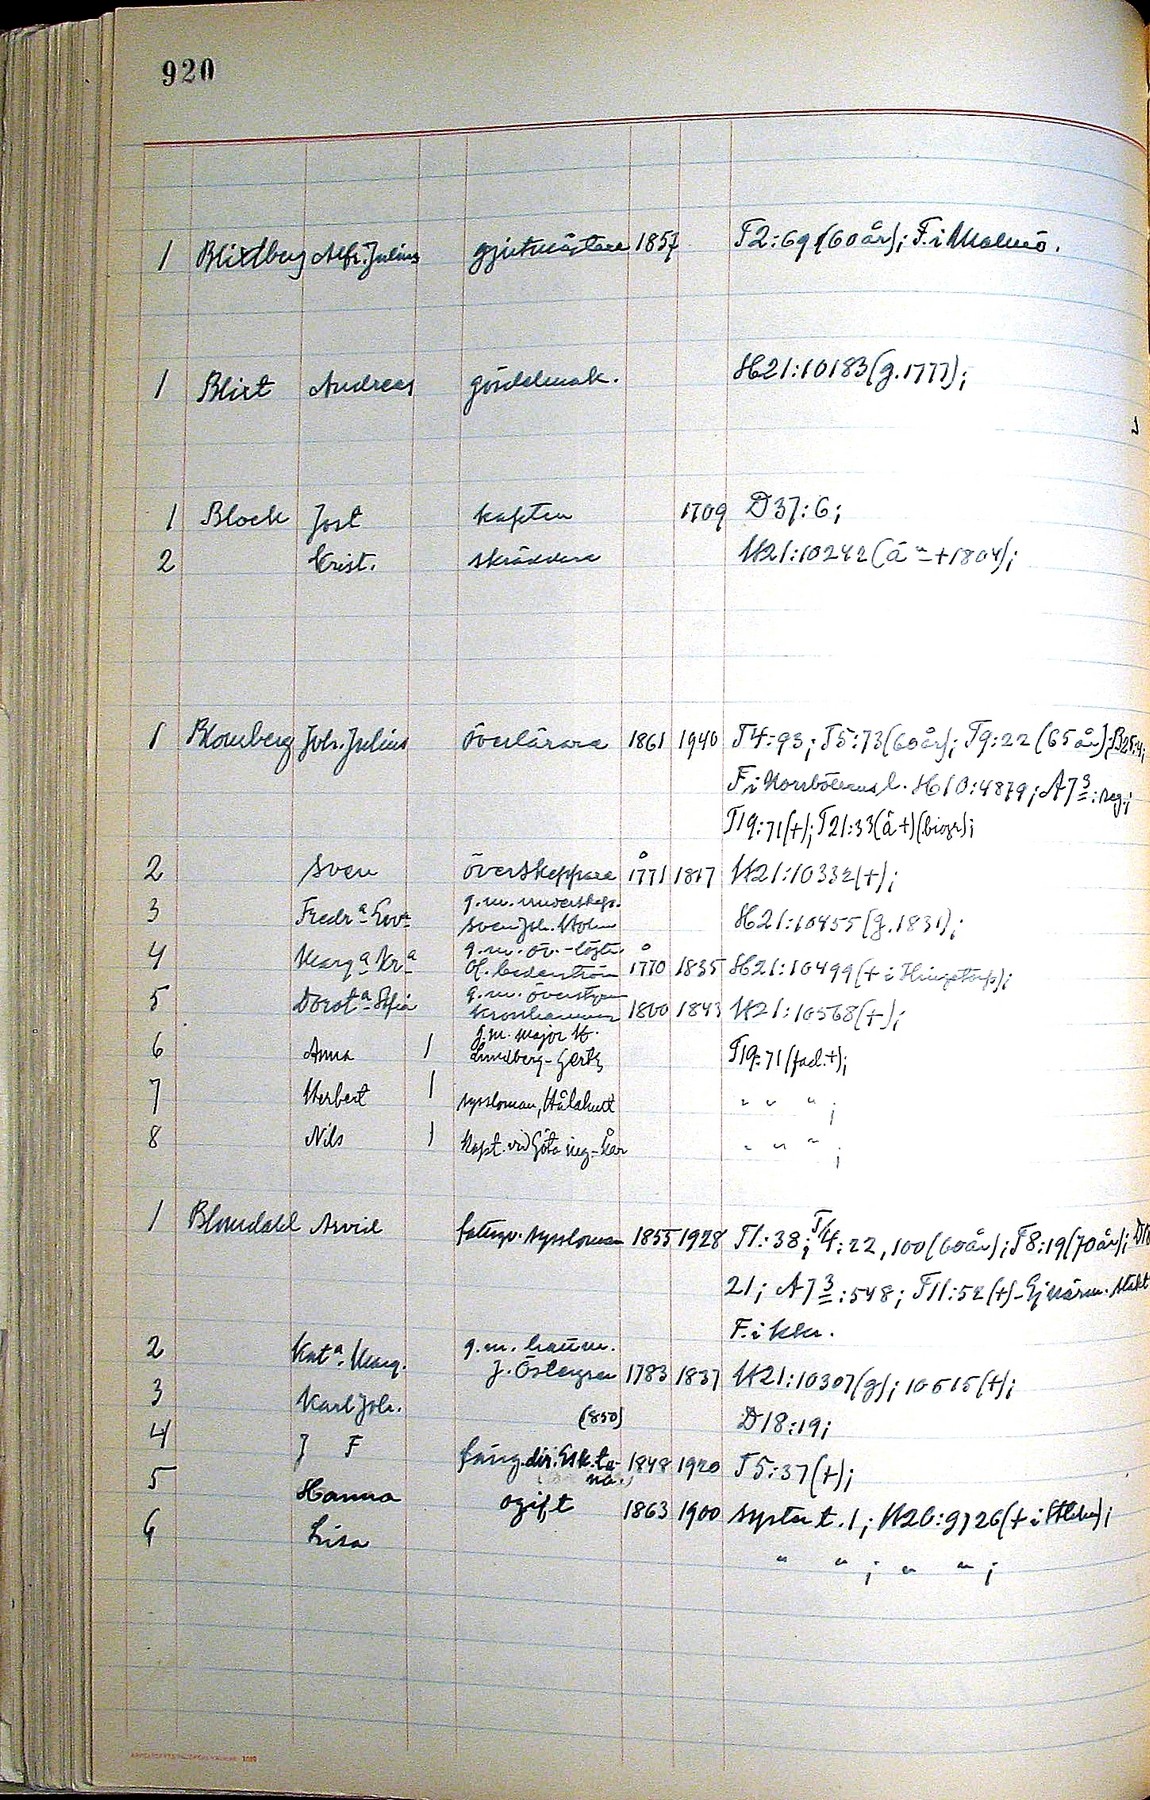 920
1 Blixtberg Alfr. Julius gjutmästare 1857 T2:69 (60 år); F. i Malmö.
1 Blixt Andreas gördelmak. H21:10183 (g. 1777);
1 Block Jost kapten 1709 D37:6;
2 Krist. skräddare H21:10242 († 1804);
1 Blomberg Joh. Julius överlärare 1861 1940 T4:93; T5:73 (60 år); T9:22 (65 år);
F. i l. H10:4879; A7³: reg.;
T19:71 (+); T21:33 (å +) (biogr);
2 Sven överskeppare 1771 1817 H21:10332 (+);
3 Fredrᵃ Evᵃ g.m. underskepp.
Sven Joh. Holm H21:10455 (g. 1831);
4 Margᵃ Krᵃ g.m. öv.-löjtn.
Of. Cederström 1770 1835 H21:10499 (+ i
5 Dorotᵃ Sofia g.m. överstyrm
1800 1843 H21:10568 (+);
6 Anna 1 g.m. major H.
Lundberg-Gertz T19:71 (fad. +);
7 Herbert 1 syssloman, Hålahult " " " ;
8 Nils 1 Kapt. vid Göta ing-kår " " " ;
1 Blomdahl Arvid fattigv. syssloman 1855 1928 T1:38; T4:22, 100 (60 år); T8:19 (70 år);
21; A7³:548; T11:52 (+) - Ej närm. släkt
F. i Kkr.
2 Katᵃ. Marg. g.m. kaurm.
J. Östergren 1783 1837 H21:10307 (g); 10515 (+);
3 Karl Joh. (850) D18:19;
4 J F fäng. dir. Esk.tu-
na. 1848 1920 T5:37 (+);
5 Hanna ogift 1863 1900 syster t. 1; H20:9726 (+ i
6 Lisa " " ; " " ;